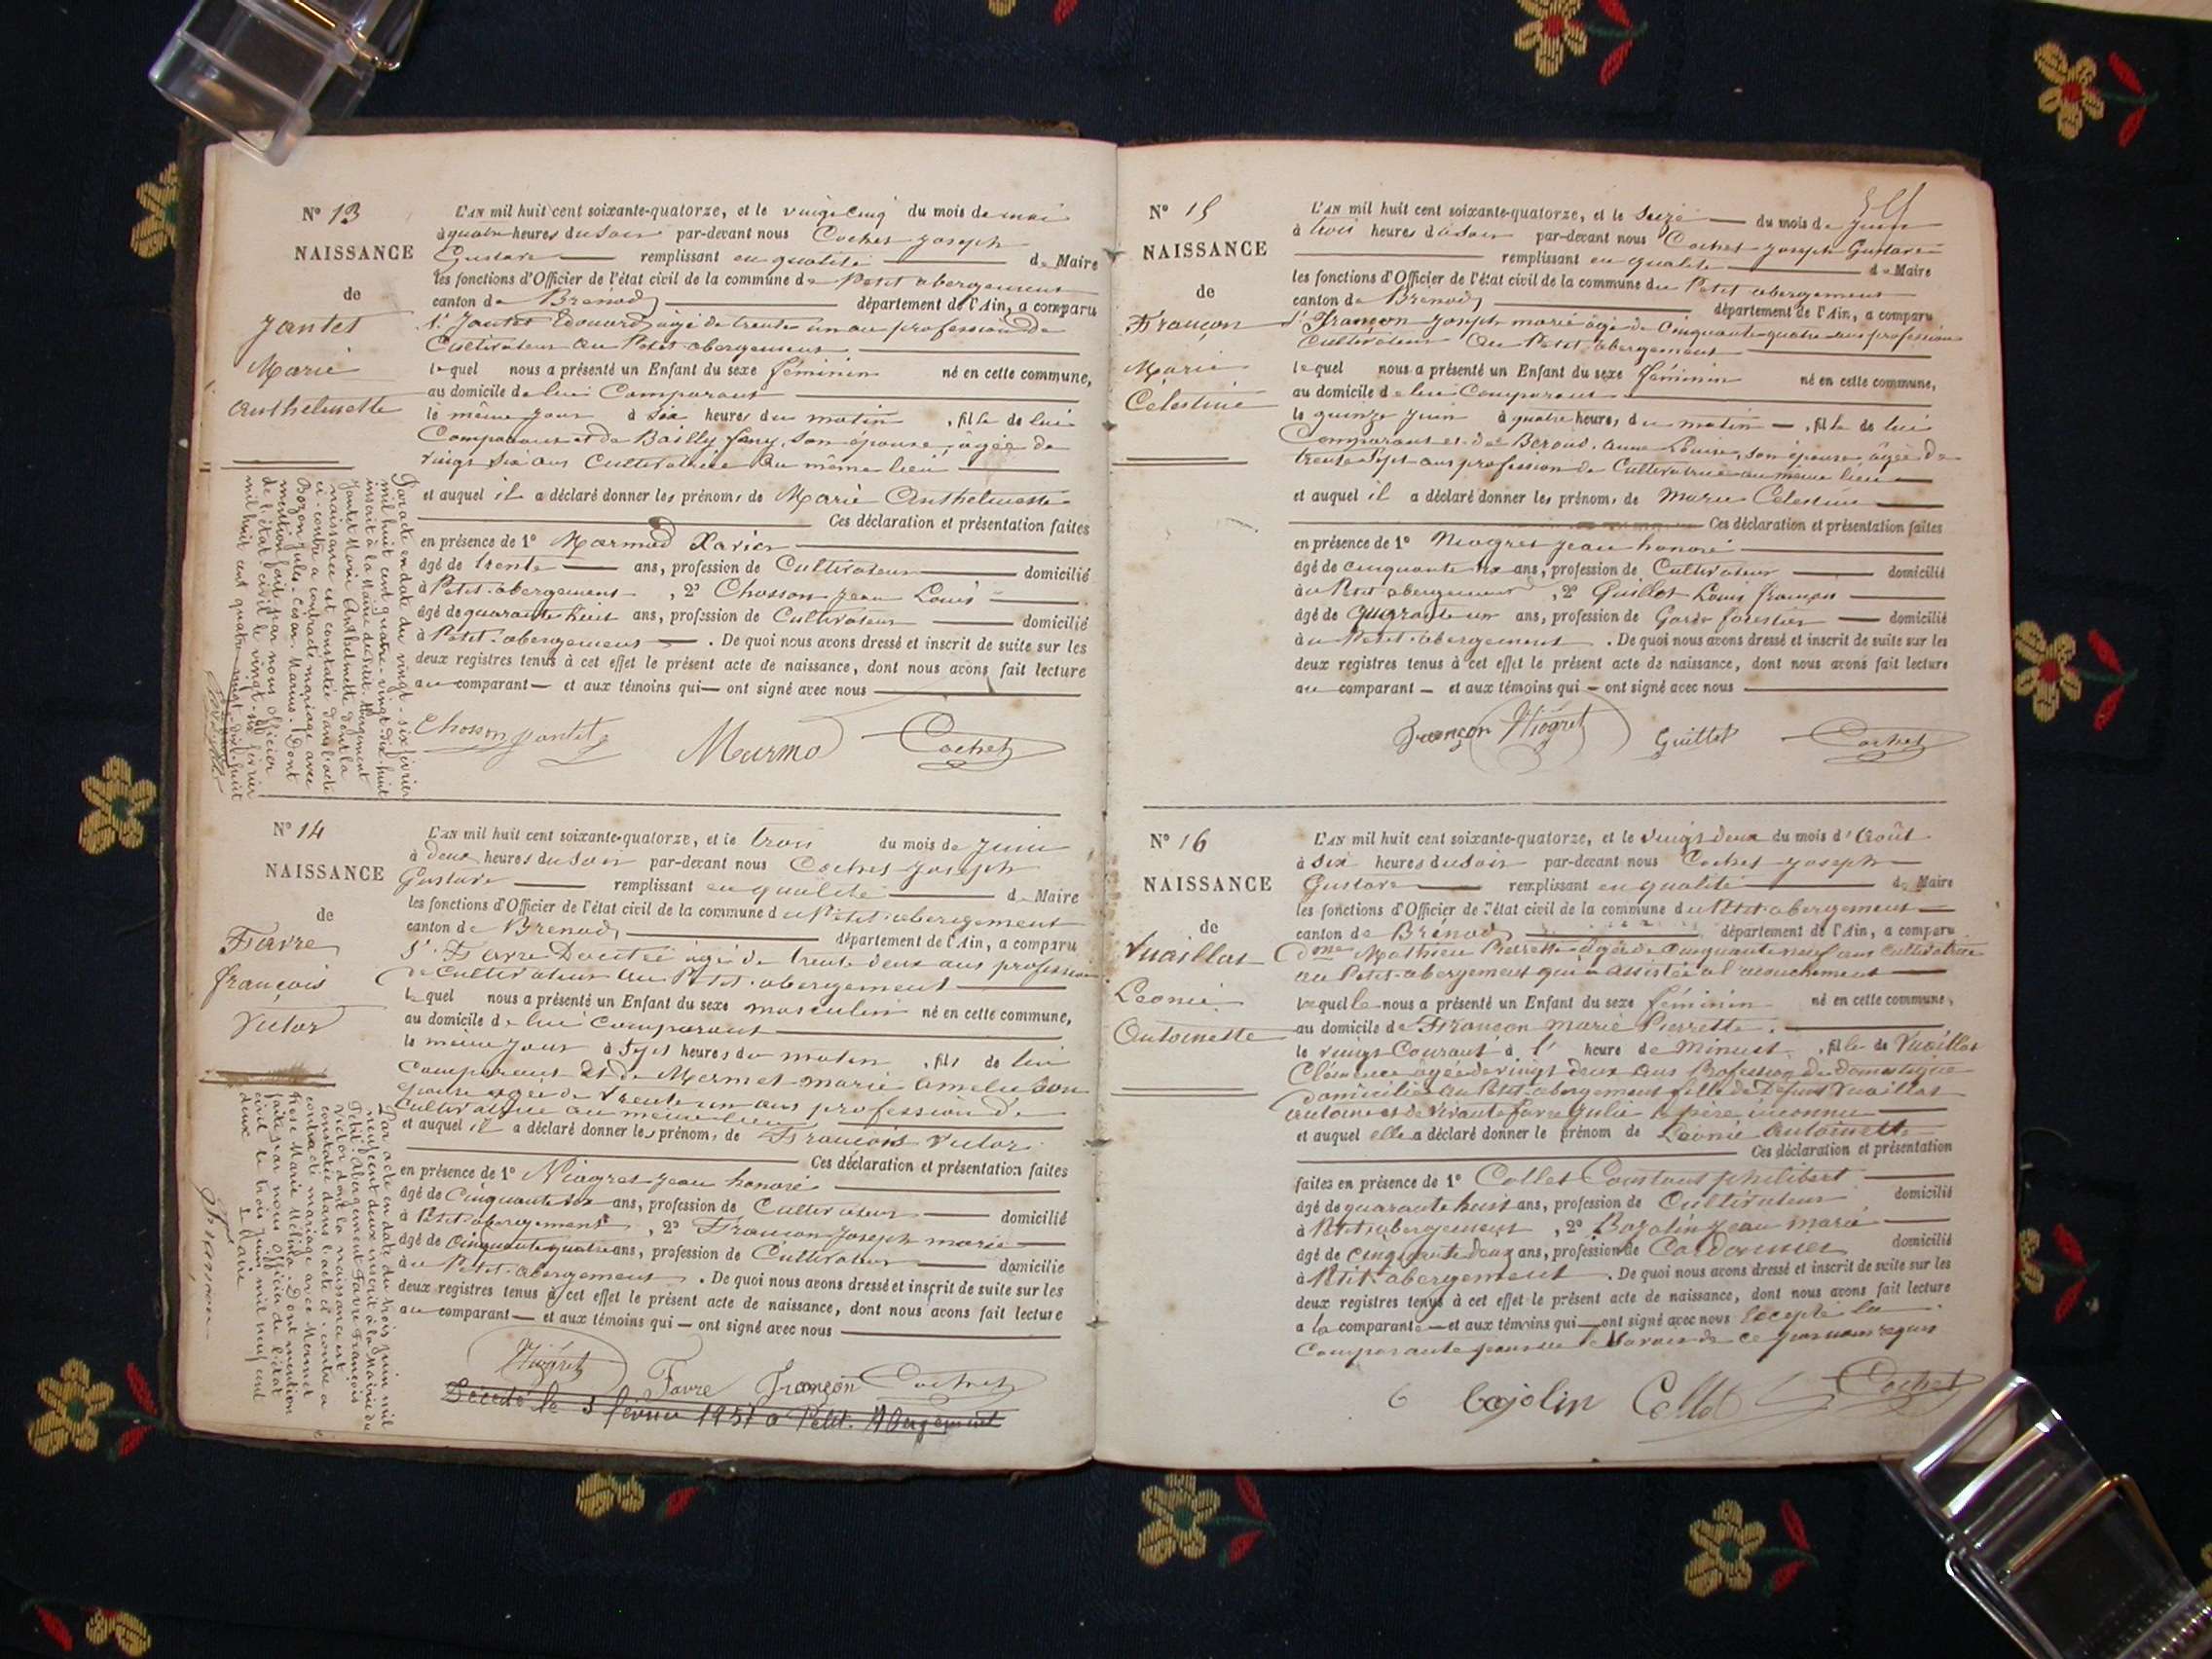 N° 13
NAISSANCE
de
Jantet
Marie
Anthelmette
L'AN mil huit cent soixante-quatorze, et le vingt cinq du mois de mai
à quatre heures du soir par-devant nous Cochet Joseph
Gustave remplissant en qualité de Maire
les fonctions d'Officier de l'état civil de la commune de Petit abergement
canton de Brenod département de l'Ain, a comparu
Sr Jantet Edouard âgé de trente un an profession de
Cultivateur au Petit-abergement
lequel nous a présenté un Enfant du sexe féminin né en cette commune,
au domicile de lui Comparant
le même jour à six heures du matin, fille de lui
Comparant et de Bailly fany, son épouse, âgée de
vingt six ans Cultivatrice au même lieu
et auquel il a déclaré donner les prénoms de Marie Anthelmette
Ces déclaration et présentation faites
en présence de 1° Marmod Xavier
âgé de trente ans, profession de Cultivateur domicilié
à Petit-abergement, 2° Chosson Jean Louis
âgé de quarante huit ans, profession de Cultivateur domicilié
à Petit-abergement. De quoi nous avons dressé et inscrit de suite sur les
deux registres tenus à cet effet le présent acte de naissance, dont nous avons fait lecture
au comparant et aux témoins qui ont signé avec nous
Chosson Jantet Marmod Cochet
Par acte en date du vingt-six février
mil huit cent quatre-vingt-dix-huit
inscrit à la Mairie du Petit-Abergement
Jantet Marie Anthelmette dont la
naissance est constatée dans l'acte
ci-contre a contracté mariage avec
Bozon Jules-César-Marius. Dont
mention faite par nous Officier
de l'état-civil le vingt-six février
mil huit cent quatre-vingt-dix-huit
N° 14
NAISSANCE
de
Favre
François
Victor
L'AN mil huit cent soixante-quatorze, et le trois du mois de Juin
à deux heures du soir par-devant nous Cochet Joseph
Gustave remplissant en qualité de Maire
les fonctions d'Officier de l'état civil de la commune du Petit-abergement
canton de Brenod département de l'Ain, a comparu
Sr Favre âgé de trente deux ans profession
de Cultivateur au Petit-abergement
lequel nous a présenté un Enfant du sexe masculin né en cette commune,
au domicile de lui comparant
le même jour à sept heures du matin, fils de lui
Comparant et de Mermet marie Amélie son
épouse agée de trente un ans profession de
Cultivatrice au même lieu
et auquel il a déclaré donner les prénoms de François Victor
Ces déclaration et présentation faites
en présence de 1° Niogret Jean honoré
âgé de Cinquante six ans, profession de Cultivateur domicilié
à Petit abergement, 2° Françon Joseph marie
âgé de Cinquante quatre ans, profession de Cultivateur domicilié
au Petit-abergement. De quoi nous avons dressé et inscrit de suite sur les
deux registres tenus à cet effet le présent acte de naissance, dont nous avons fait lecture
au comparant et aux témoins qui ont signé avec nous
Niogret Favre Françon Cochet
Décédé le 3 février 1951 à Petit-Abergement
Par acte en date du trois juin mil
neuf cent deux inscrit à la Mairie du
Petit-Abergement Favre François
Victor dont la naissance est
constatée dans l'acte ci-contre a
contracté mariage avec Mermet
Marie Mélina. Dont mention
faite par nous Officier de l'état
civil le trois juin mil neuf cent
deux Le Maire
Françon
N° 15
NAISSANCE
de
Françon
Marie
Célestine
L'AN mil huit cent soixante-quatorze, et le seize du mois de Juin
à trois heures du soir par-devant nous Cochet Joseph Gustave
remplissant en qualité de Maire
les fonctions d'Officier de l'état civil de la commune du Petit abergement
canton de Brenod département de l'Ain, a comparu
Sr Françon Joseph marie âgé de Cinquante-quatre ans profession
Cultivateur au Petit-abergement
lequel nous a présenté un Enfant du sexe féminin né en cette commune,
au domicile de lui Comparant
le quinze Juin à quatre heures du matin, fille de lui
Comparant et de Béroud Anne Louise, son épouse âgée de
trente sept ans profession de Cultivatrice au même lieu
et auquel il a déclaré donner les prénoms de Marie Célestine
Ces déclaration et présentation faites
en présence de 1° Niogret Jean honoré
âgé de cinquante six ans, profession de Cultivateur domicilié
au Petit abergement, 2° Guillot Louis françois
âgé de quarante un ans, profession de Garde forestier domicilié
au Petit-abergement. De quoi nous avons dressé et inscrit de suite sur les
deux registres tenus à cet effet le présent acte de naissance, dont nous avons fait lecture
au comparant et aux témoins qui ont signé avec nous
Françon Niogret Guillot Cochet
N° 16
NAISSANCE
de
Vuaillat
Léonie
Antoinette
L'AN mil huit cent soixante-quatorze, et le vingt deux du mois d'Août
à six heures du soir par-devant nous Cochet Joseph
Gustave remplissant en qualité de Maire
les fonctions d'Officier de l'état civil de la commune du Petit abergement
canton de Brénod département de l'Ain, a comparu
Dme Mathieu Pierrette âgée de Cinquante neuf ans Cultivatrice
au Petit-abergement qui a assistée a l'acouchement
lequelle nous a présenté un Enfant du sexe féminin né en cette commune,
au domicile de Françon Marie Pierrette.
le vingt Courant à l' heure de Minuit, fille de Vuaillat
Clémence âgée de vingt deux ans Profession de domestique
domiciliée au Petit-abergement fille de Défunt Vuaillat
Antoine et de vivante favre Julie le père inconnu
et auquel elle a déclaré donner le prénom de Léonie Antoinette
Ces déclaration et présentation
faites en présence de 1° Collet Constant philibert
âgé de quarante huit ans, profession de Cultivateur domicilié
à Petit abergement, 2° Bojolin Jean marie
âgé de cinquante deux ans, profession de Cordonnier domicilié
à Petit-abergement. De quoi nous avons dressé et inscrit de suite sur les
deux registres tenus à cet effet le présent acte de naissance, dont nous avons fait lecture
a la comparante et aux témoins qui ont signé avec nous Excepté la
Comparante pour ne le savoir de ce par nous requis
bojolin Collet Cochet